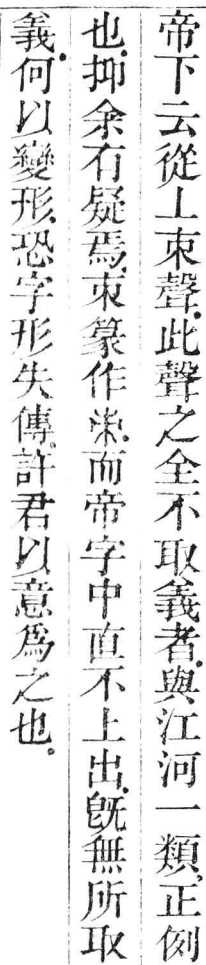 帝下云從丄朿聲。此聲之全不取義者。與江河一類。正例
也。抑余有疑焉。朿篆作𣎵。而帝字中直不上出。旣無所取
義。何以變形。恐字形失傳。許君以意爲之也。